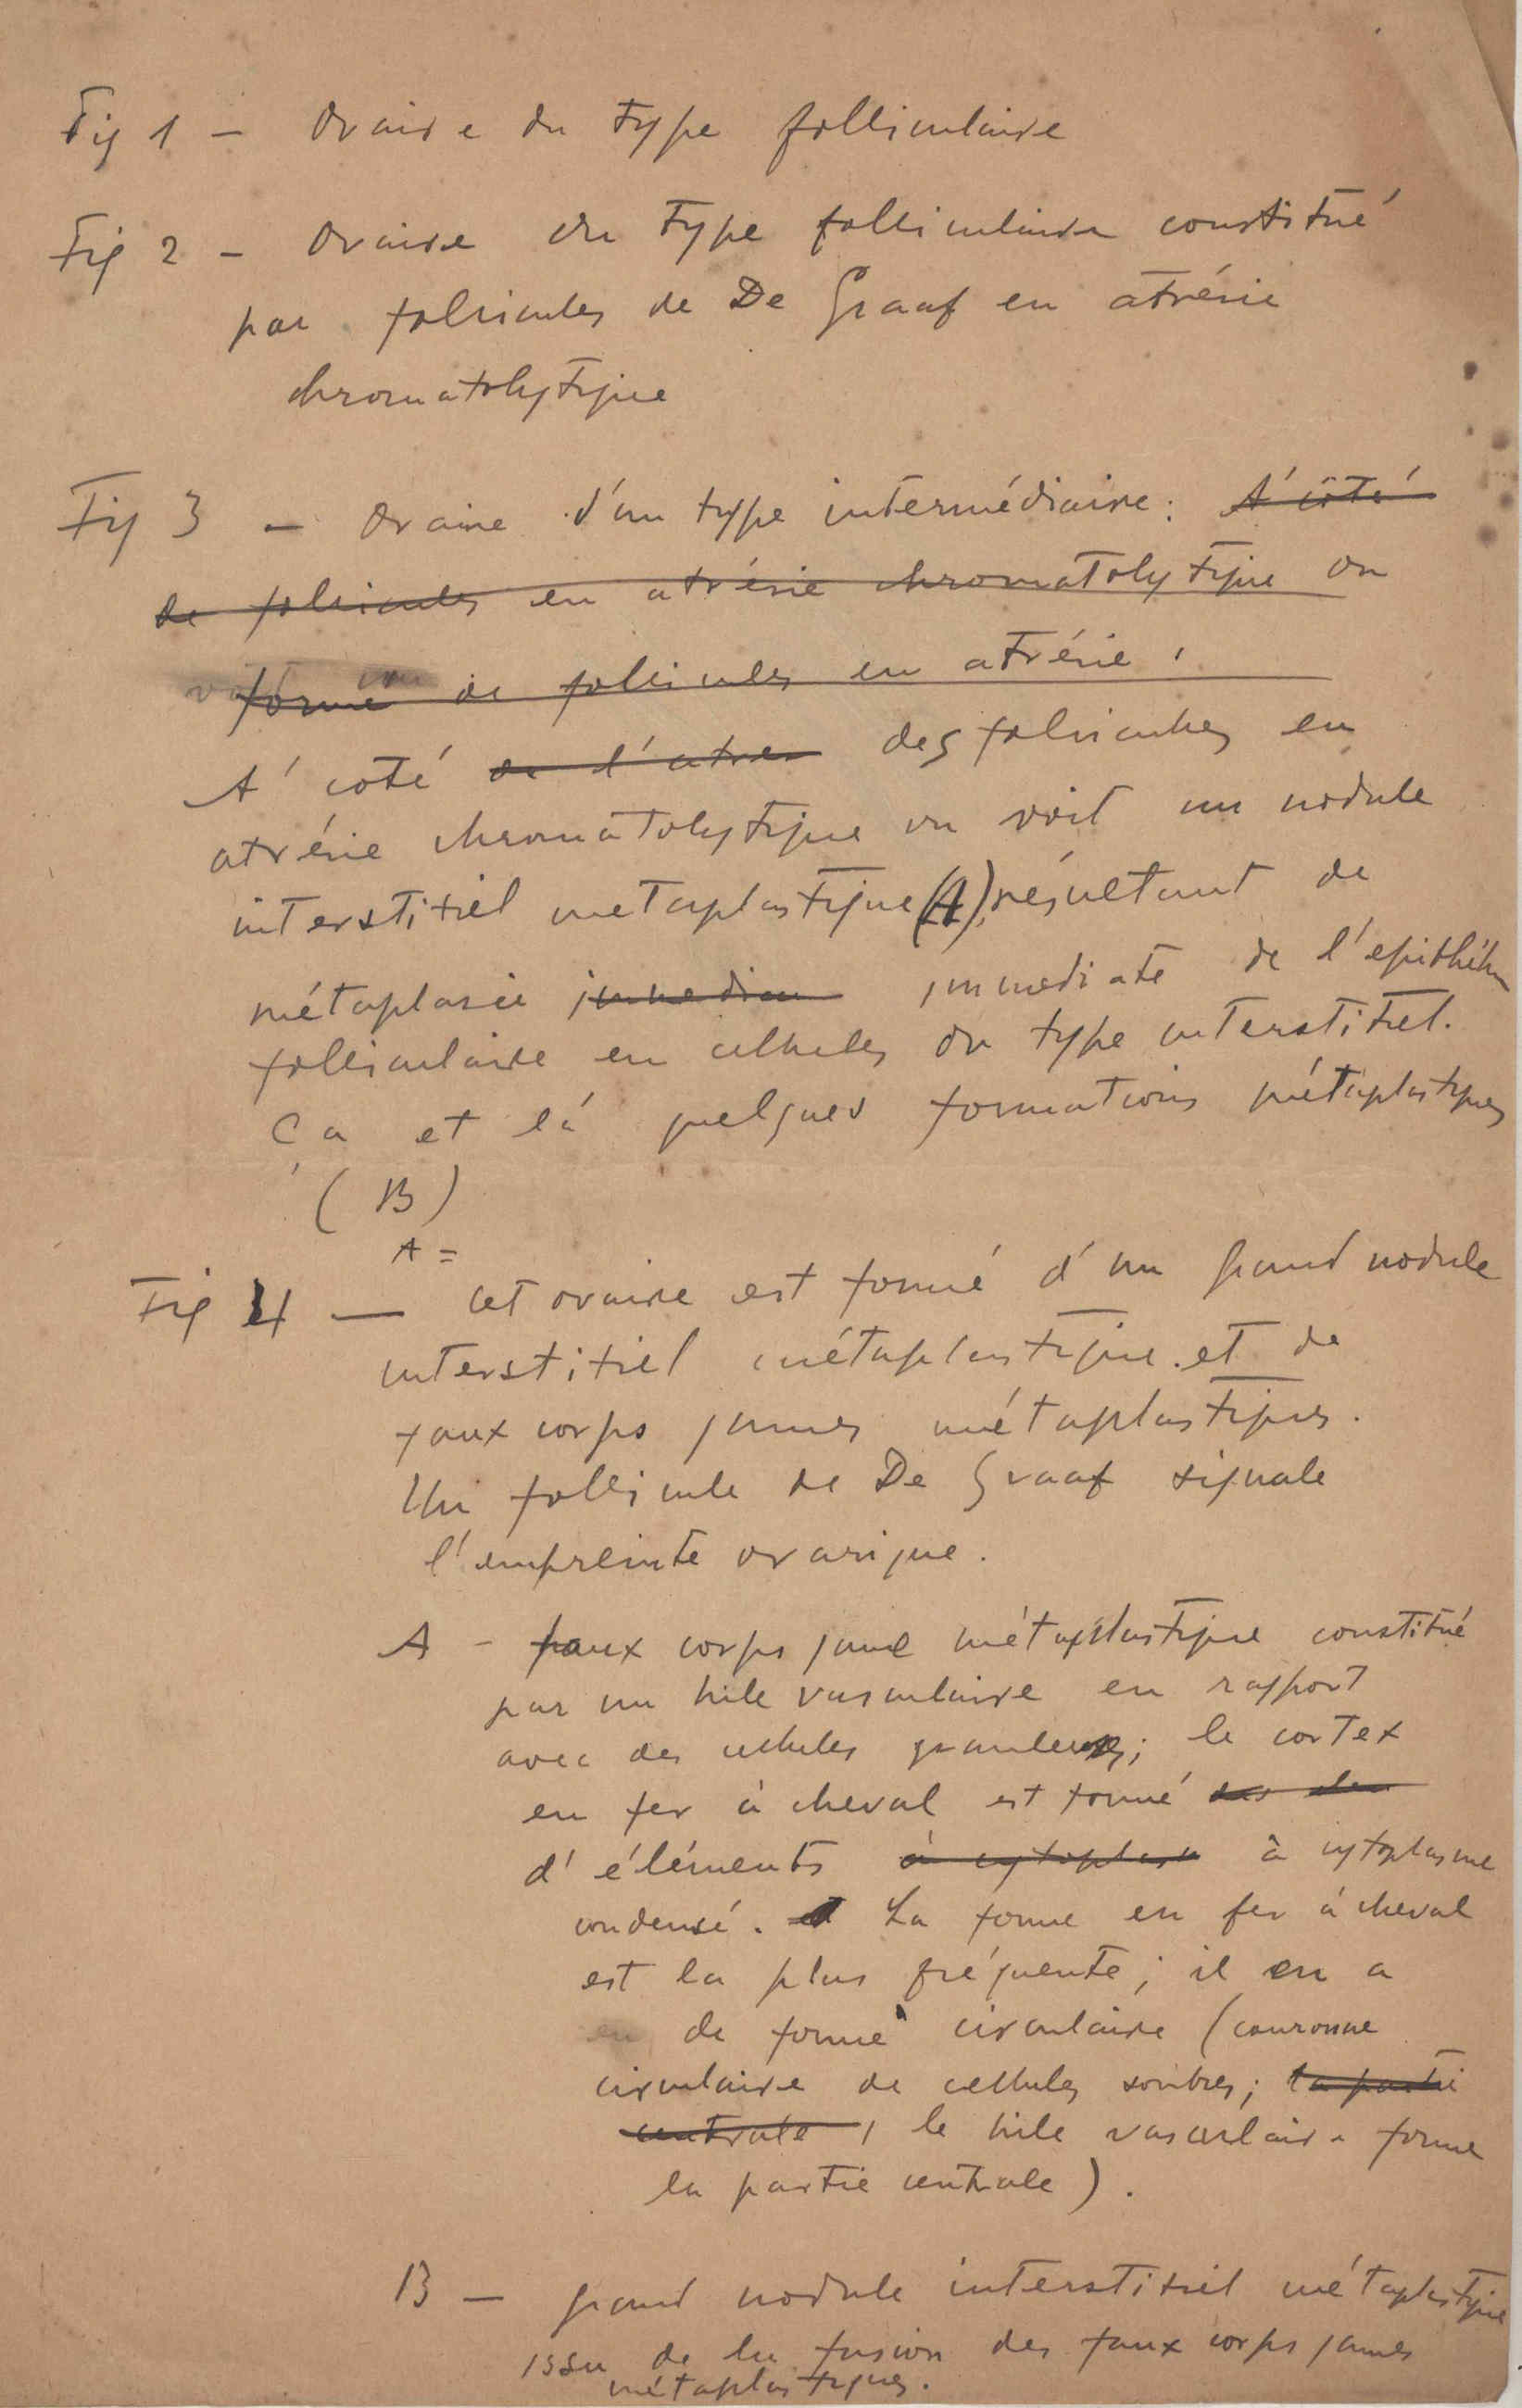 Fig 1 - Ovaire du type folliculaire
Fig 2 - Ovaire du type folliculaire constitué
par follicules de De Graaf en atrésie
chromatolytique
Fig 3 - Ovaire d'un type intermédiaire: A' côté
de follicules en atrésie chromatolytique on
forme de follicules en atrésie,
A' coté de l'atres des follicules en
atrésie chromatolytique on voit un nodule
interstitiel metaplastique (A), résultant de
métaplasie immedia immediate de l'epithélium
folliculaire en cellules du type interstitiel.
Ça et lá quelques formations métaplastiques
(B)
A =
Fig 4 — Cet ovaire est formé d'un grand nodule
interstitiel métaplastique et de
faux corps jaunes métaplastiques.
Un follicule de De Graaf signale
l'empreinte ovarique.
A - faux corps jaune métaplastique constitué
par un hile vasculaire en rapport
avec des cellules granuleuses; le cortex
en fer à cheval est formé des
d'éléments à cytoplasm à cytoplasme
condensé. La forme en fer á cheval
est la plus fréquente; il en a
de forme circulaire (couronne
circulaire de cellules sombres; la partie
centrale, le hile vasculaire forme
la partie centrale).
B — grand nodule interstitiel métaplastique
issu de la fusion des faux corps jaunes
métaplastiques.